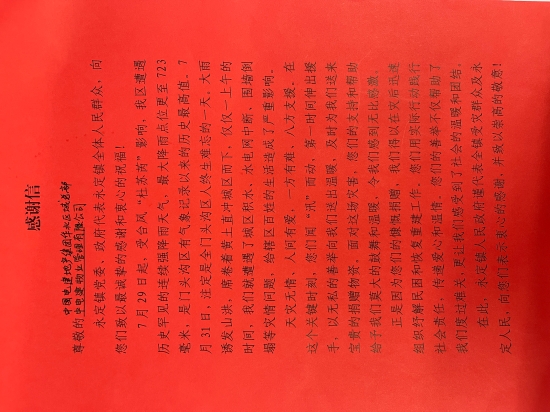 感谢信
中国电建地产集团华北区域总部
尊敬的 中电建物业管理有限公司
永定镇党委、政府代表永定镇全体人民群众，向
您们致以最诚挚的感谢和衷心的祝福！
7月29日起，受台风“杜苏芮”影响，我区遭遇
历史罕见的连续强降雨天气，最大降雨点位更至 723
毫米，是门头沟区有气象记录以来的历史最高值。7
月31日，注定是全门头沟区人终生难忘的一天，大雨
诱发山洪，席卷着黄土直冲城区而下，仅仅一上午的
时间，我们就遭遇了城区积水、水电网中断、围墙倒
塌等灾情问题，给辖区百姓的生活造成了严重影响。
天灾无情，人间有爱，一方有难，八方支援。在
这个关键时刻，您们闻“汛”而动，第一时间伸出援
手，以无私的善举向我们送出温暖，及时为我们送来
宝贵的捐赠物资。面对这场灾害，您们的支持和帮助
给予我们莫大的鼓舞和温暖，令我们感到无比感激。
正是因为您们的慷慨捐赠，我们得以在灾后迅速
组织纾解民困和恢复重建工作。您们用实际行动践行
社会责任，传递爱心和温情，您们的善举不仅帮助了
我们度过难关，更让我们感受到了社会的温暖和团结。
在此，永定镇人民政府谨代表全镇受灾群众及永
定人民，向您们表示衷心的感谢，并致以崇高的敬意！